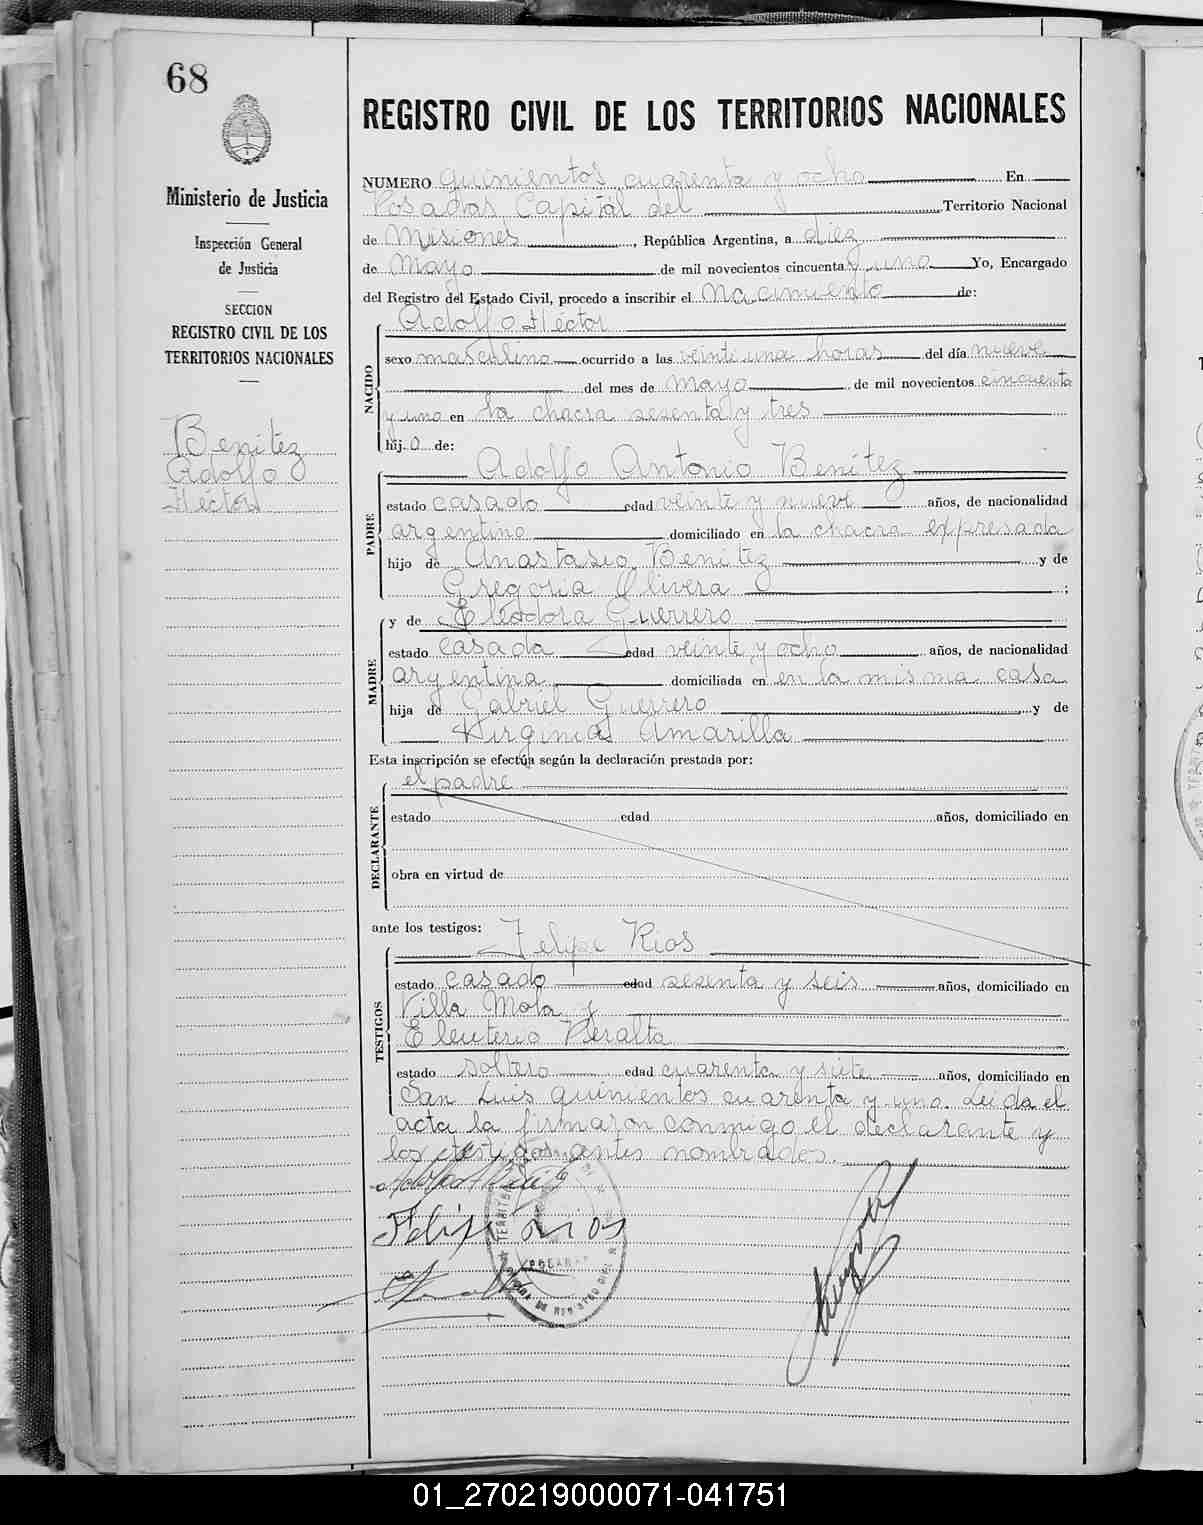 68
REGISTRO CIVIL DE LOS TERRITORIOS NACIONALES
Ministerio de Justicia
Inspección General
de Justicia
SECCION
REGISTRO CIVIL DE LOS
TERRITORIOS NACIONALES
Benítez
Adolfo
Héctor
NUMERO quinientos cuarenta y ocho En
Posadas Capital del Territorio Nacional
de Misiones, República Argentina, a diez
de Mayo de mil novecientos cincuenta y uno Yo, Encargado
del Registro del Estado Civil, procedo a inscribir el Nacimiento de:
NACIDO
Adolfo Héctor
sexo masculino ocurrido a las veinte una horas del día nueve
del mes de mayo de mil novecientos cincuenta
y uno en la chacra sesenta y tres
hijo de:
PADRE
Adolfo Antonio Benítez
estado casado edad veinte y nueve años, de nacionalidad
argentino domiciliado en la chacra expresada
hijo de Anastasio Benítez y de
Gregoria Olivera ;
MADRE
y de Eleodora Guerrero
estado casada edad veinte y ocho años, de nacionalidad
argentina domiciliada en en la misma casa
hija de Gabriel Guerrero y de
Virginia Amarilla
Esta inscripción se efectúa según la declaración prestada por:
DECLARANTE
el padre
estado edad años, domiciliado en
obra en virtud de
ante los testigos:
TESTIGOS
Felipe Rios
estado casado edad sesenta y seis años, domiciliado en
Villa Mola y
Eleuterio Peralta
estado soltero edad cuarenta y siete años, domiciliado en
San Luis quinientos cuarenta y uno. Leida el
acta la firmaron conmigo el declarante y
los testigos antes nombrados.
Felipe Rios
POSADAS
01_270219000071-041751